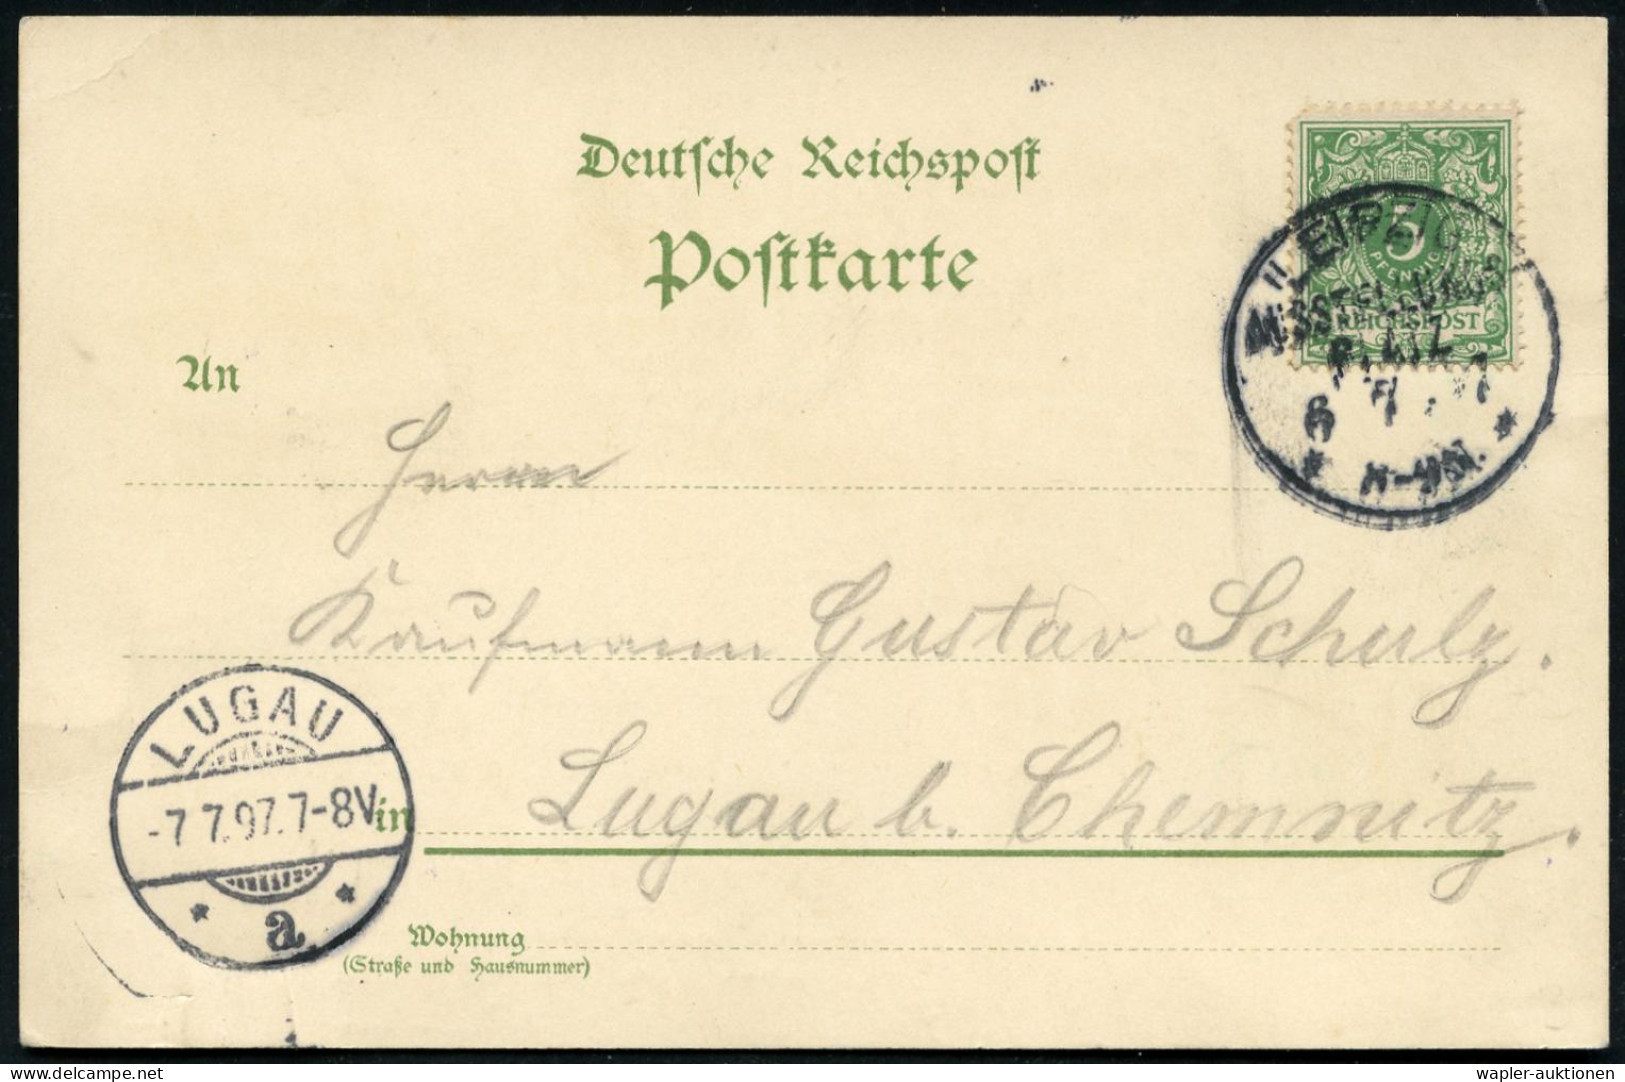 Deutsche Reichspost
Postkarte
5
PFENNIG
REICHSPOST
LEIPZIG
AUSSTELLUNGS
PLATZ
6 7
8-9N.
An
Herrn
Kaufmann Gustav Schulz.
LUGAU
-7 7.97.7-8V.
a
in Lugau b. Chemnitz.
Wohnung
(Straße und Hausnummer)
delcampe.net
wapler-auktionen